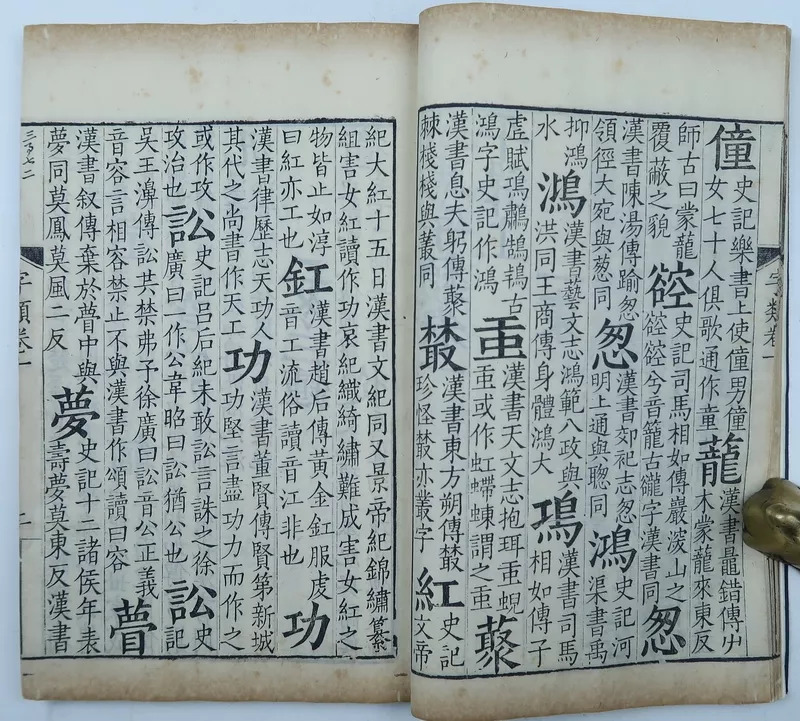 僮
史記樂書上使僮男僮
女七十人俱歌通作童
蘢
漢書鼂錯傳屮
木蒙蘢來東反
師古曰蒙蘢
覆蔽之貌
谾
史記司馬相如傳巖深山之
谾谾兮音籠古谾字漢書同
怱
漢書陳湯傳踰怱
領徑大宛與葱同
怱
漢書郊祀志怱
明上通與聰同
鴻
史記河
渠書禹
抑鴻
水
鴻
漢書藝文志鴻範八政與
洪同王商傳身體鴻大
鳿
漢書司馬
相如傳子
虛賦鳿鷫鵠鴇古
鴻字史記作鴻
䖝
漢書天文志抱珥䖝蜺
䖝或作虹螮蝀謂之䖝
藂
漢書息夫躬傳藂
棘棧棧與叢同
藂
漢書東方朔傳藂
珍怪藂亦叢字
紅
史記
文帝
字類卷一
紀大紅十五日漢書文紀同又景帝紀錦繡纂
組害女紅讀作功哀紀織綺繡難成害女紅之
物皆止如淳
曰紅亦工也
釭
漢書趙后傳黃金釭服虔
音工流俗讀音江非也
功
漢書律歷志天功人
其代之尚書作天工
功
漢書董賢傳賢第新城
功堅言盡功力而作之
或作攻
攻治也
訟
史記呂后紀未敢訟言誅之徐
廣曰一作公韋昭曰訟猶公也
訟
史
記
吳王濞傳訟共禁弗予徐廣曰訟音公正義
音容言相容禁止不與漢書作頌讀曰容
瞢
漢書叙傳棄於瞢中與
夢同莫鳳莫風二反
夢
史記十二諸侯年表
壽夢莫東反漢書
三百七二
字類卷一
一